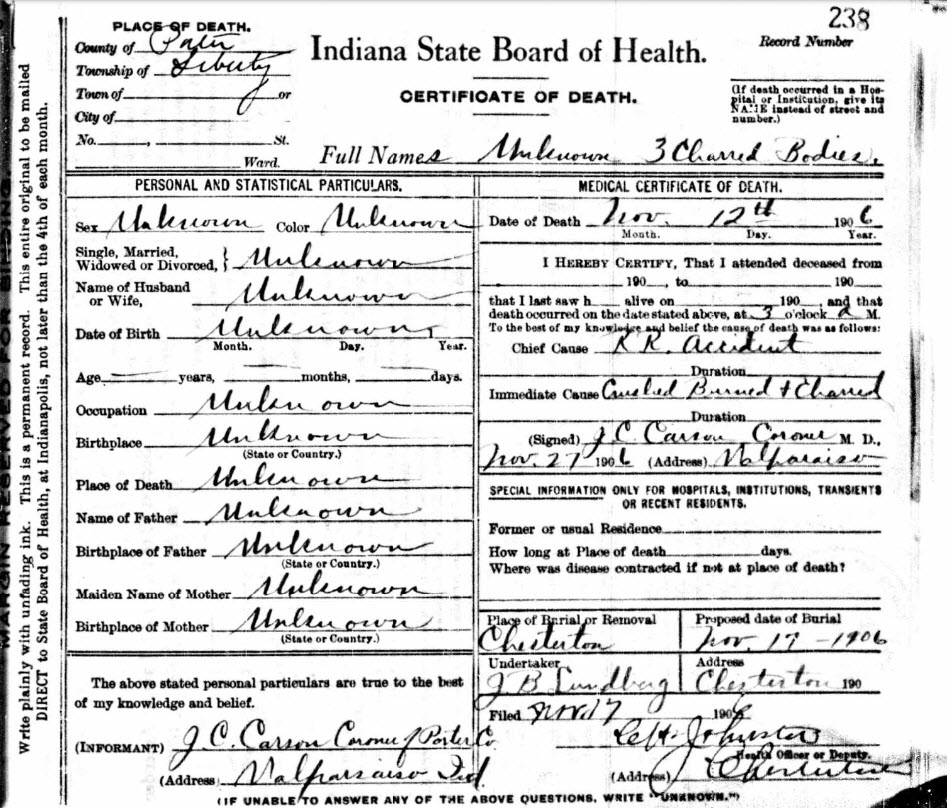 238
PLACE OF DEATH.
County of Porter
Township of Liberty
Town of or
City of
No. , St.
Ward.
Indiana State Board of Health.
CERTIFICATE OF DEATH.
Record Number
(If death occurred in a Hos-
pital or Institution, give its
NAME instead of street and
number.)
Full Names Unknown 3 Charred Bodies.
MARGIN RESERVED FOR BINDING
Write plainly with unfading ink. This is a permanent record. This entire original to be mailed
DIRECT to State Board of Health, at Indianapolis, not later than the 4th of each month.
PERSONAL AND STATISTICAL PARTICULARS.
Sex Unknown Color Unknown
Single, Married,
Widowed or Divorced, } Unknown
Name of Husband
or Wife, Unknown
Date of Birth Unknown
Month. Day. Year.
Age years, months, days.
Occupation Unknown
Birthplace Unknown
(State or Country.)
Place of Death Unknown
Name of Father Unknown
Birthplace of Father Unknown
(State or Country.)
Maiden Name of Mother Unknown
Birthplace of Mother Unknown
(State or Country.)
The above stated personal particulars are true to the best
of my knowledge and belief.
(INFORMANT) J. C. Carson Coroner of Porter Co.
(Address) Valparaiso Ind.
MEDICAL CERTIFICATE OF DEATH.
Date of Death Nov. 12th 1906
Month. Day. Year.
I HEREBY CERTIFY, That I attended deceased from
190 , to 190
that I last saw h alive on 190 , and that
death occurred on the date stated above, at 3 o'clock a M.
To the best of my knowledge and belief the cause of death was as follows:
Chief Cause R R. Accident
Duration
Immediate Cause Crushed Burned + Charred
Duration
(Signed) J. C. Carson Coroner M. D.,
Nov. 27 1906 (Address) Valparaiso
SPECIAL INFORMATION ONLY FOR HOSPITALS, INSTITUTIONS, TRANSIENTS
OR RECENT RESIDENTS.
Former or usual Residence
How long at Place of death days.
Where was disease contracted if not at place of death?
Place of Burial or Removal
Chesterton
Proposed date of Burial
Nov. 17 - 1906
Undertaker
J B Lundberg
Address
Chesterton 190
Filed Nov 17 1906
Johnston
Health Officer or Deputy.
(Address) Chesterton
(IF UNABLE TO ANSWER ANY OF THE ABOVE QUESTIONS, WRITE "UNKNOWN.")